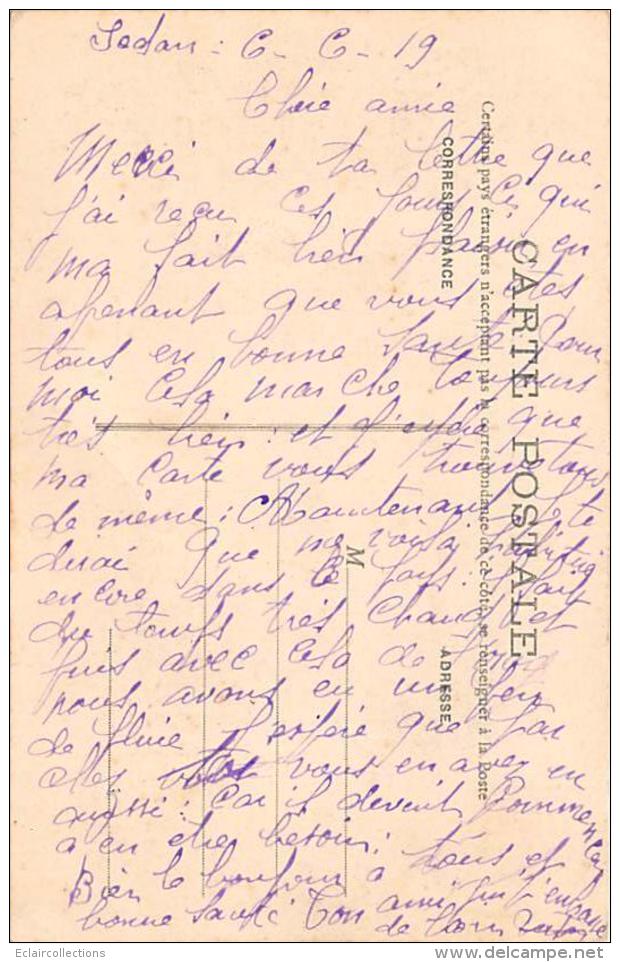 Sedan : 6 - 6 - 19
Chère amie
Merci de ta lettre que
j'ai reçu ces jours ci qui
ma fait bien plaisir en
apenant que vous êtes
tous en bonne santé Pour
moi cela marche toujours
très bien : et j'espère que
ma carte vous trouve tous
de même ; Maintenant je te
dirai que me voisi
encore dans le Pays : il fait
du temps très chaud et
puis avec cela de
nous avons eu un peu
de pluie j'espère que par
chez vous en avez eu
aussi : Car il devait commencer
a en etre besoin ; 
Bien le bonjour à tous et
bonne Santé Ton ami qui t'embrasse
de loin
CARTE POSTALE
Certains pays étrangers n'acceptant pas la correspondance de ce côté, se renseigner à la Poste
CORRESPONDANCE
ADRESSE
M
Eclaircollections
www.delcampe.net